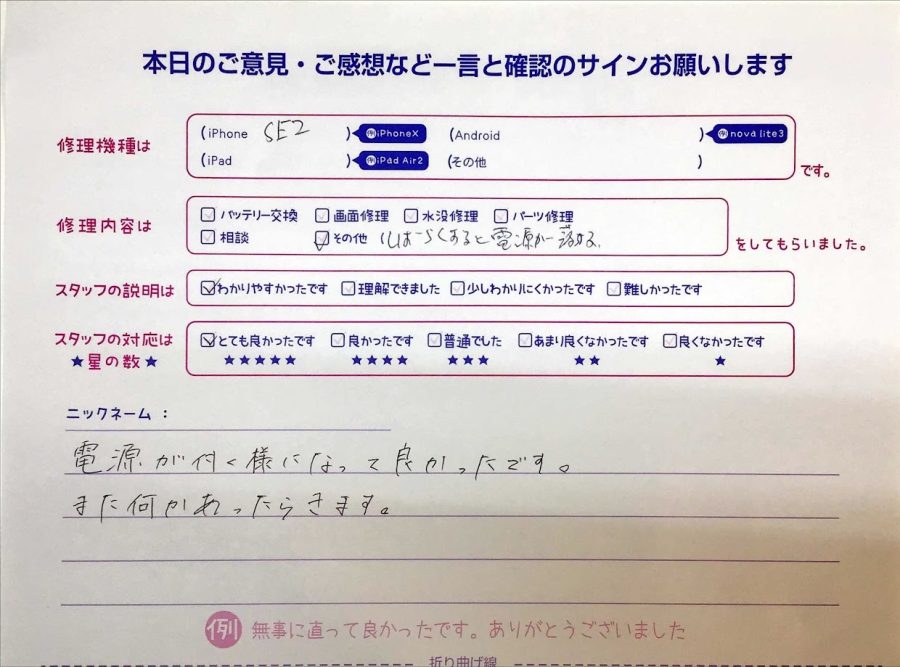 本日のご意見・ご感想など一言と確認のサインお願いします
修理機種は (iPhone SE2 ) 例iPhoneX (Android ) 例nova lite3
(iPad ) 例iPad Air2 (その他 ) です。
修理内容は バッテリー交換 画面修理 水没修理 パーツ修理
相談 その他 (しばらくすると電源が落ちる。 をしてもらいました。
スタッフの説明は わかりやすかったです 理解できました 少しわかりにくかったです 難しかったです
スタッフの対応は とても良かったです 良かったです 普通でした あまり良くなかったです 良くなかったです
★星の数★ ★★★★★ ★★★★ ★★★ ★★ ★
ニックネーム：
電源が付く様になって良かったです。
また何かあったらきます。
例 無事に直って良かったです。ありがとうございました
折り曲げ線